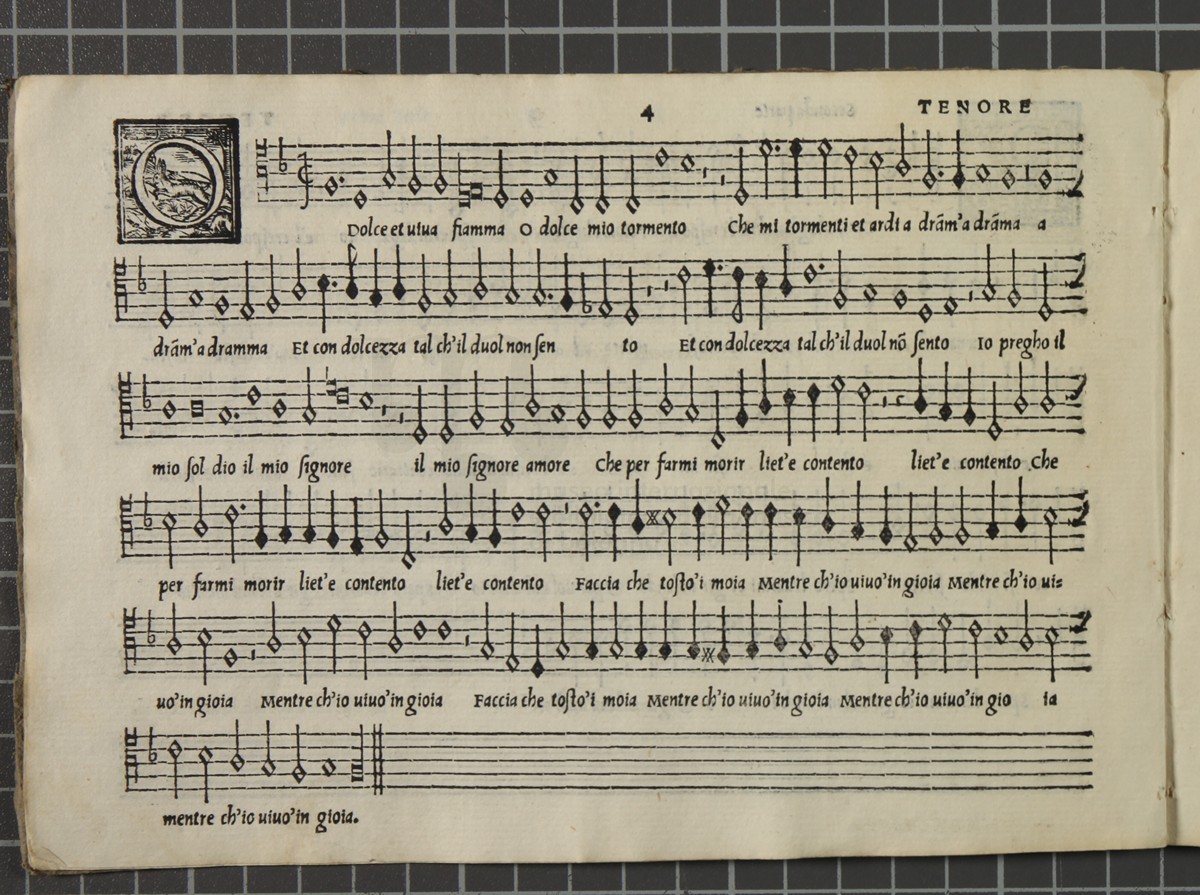 4
TENORE
O
Dolce et uiua fiamma O dolce mio tormento Che mi tormenti et ardi a drãm'a drãma a
drãm'a dramma Et con dolcezza tal ch'il duol non sen to Et con dolcezza tal ch'il duol nõ sento Io pregho il
mio sol dio il mio signore il mio signore amore Che per farmi morir liet'e contento liet'e contento Che
per farmi morir liet'e contento liet'e contento Faccia che tosto'i moia Mentre ch'io uiuo'in gioia Mentre ch'io ui=
uo'in gioia Mentre ch'io uiuo'in gioia Faccia che tosto'i moia Mentre ch'io uiuo'in gioia Mentre ch'io uiuo'in gio ia
mentre ch'io uiuo'in gioia.